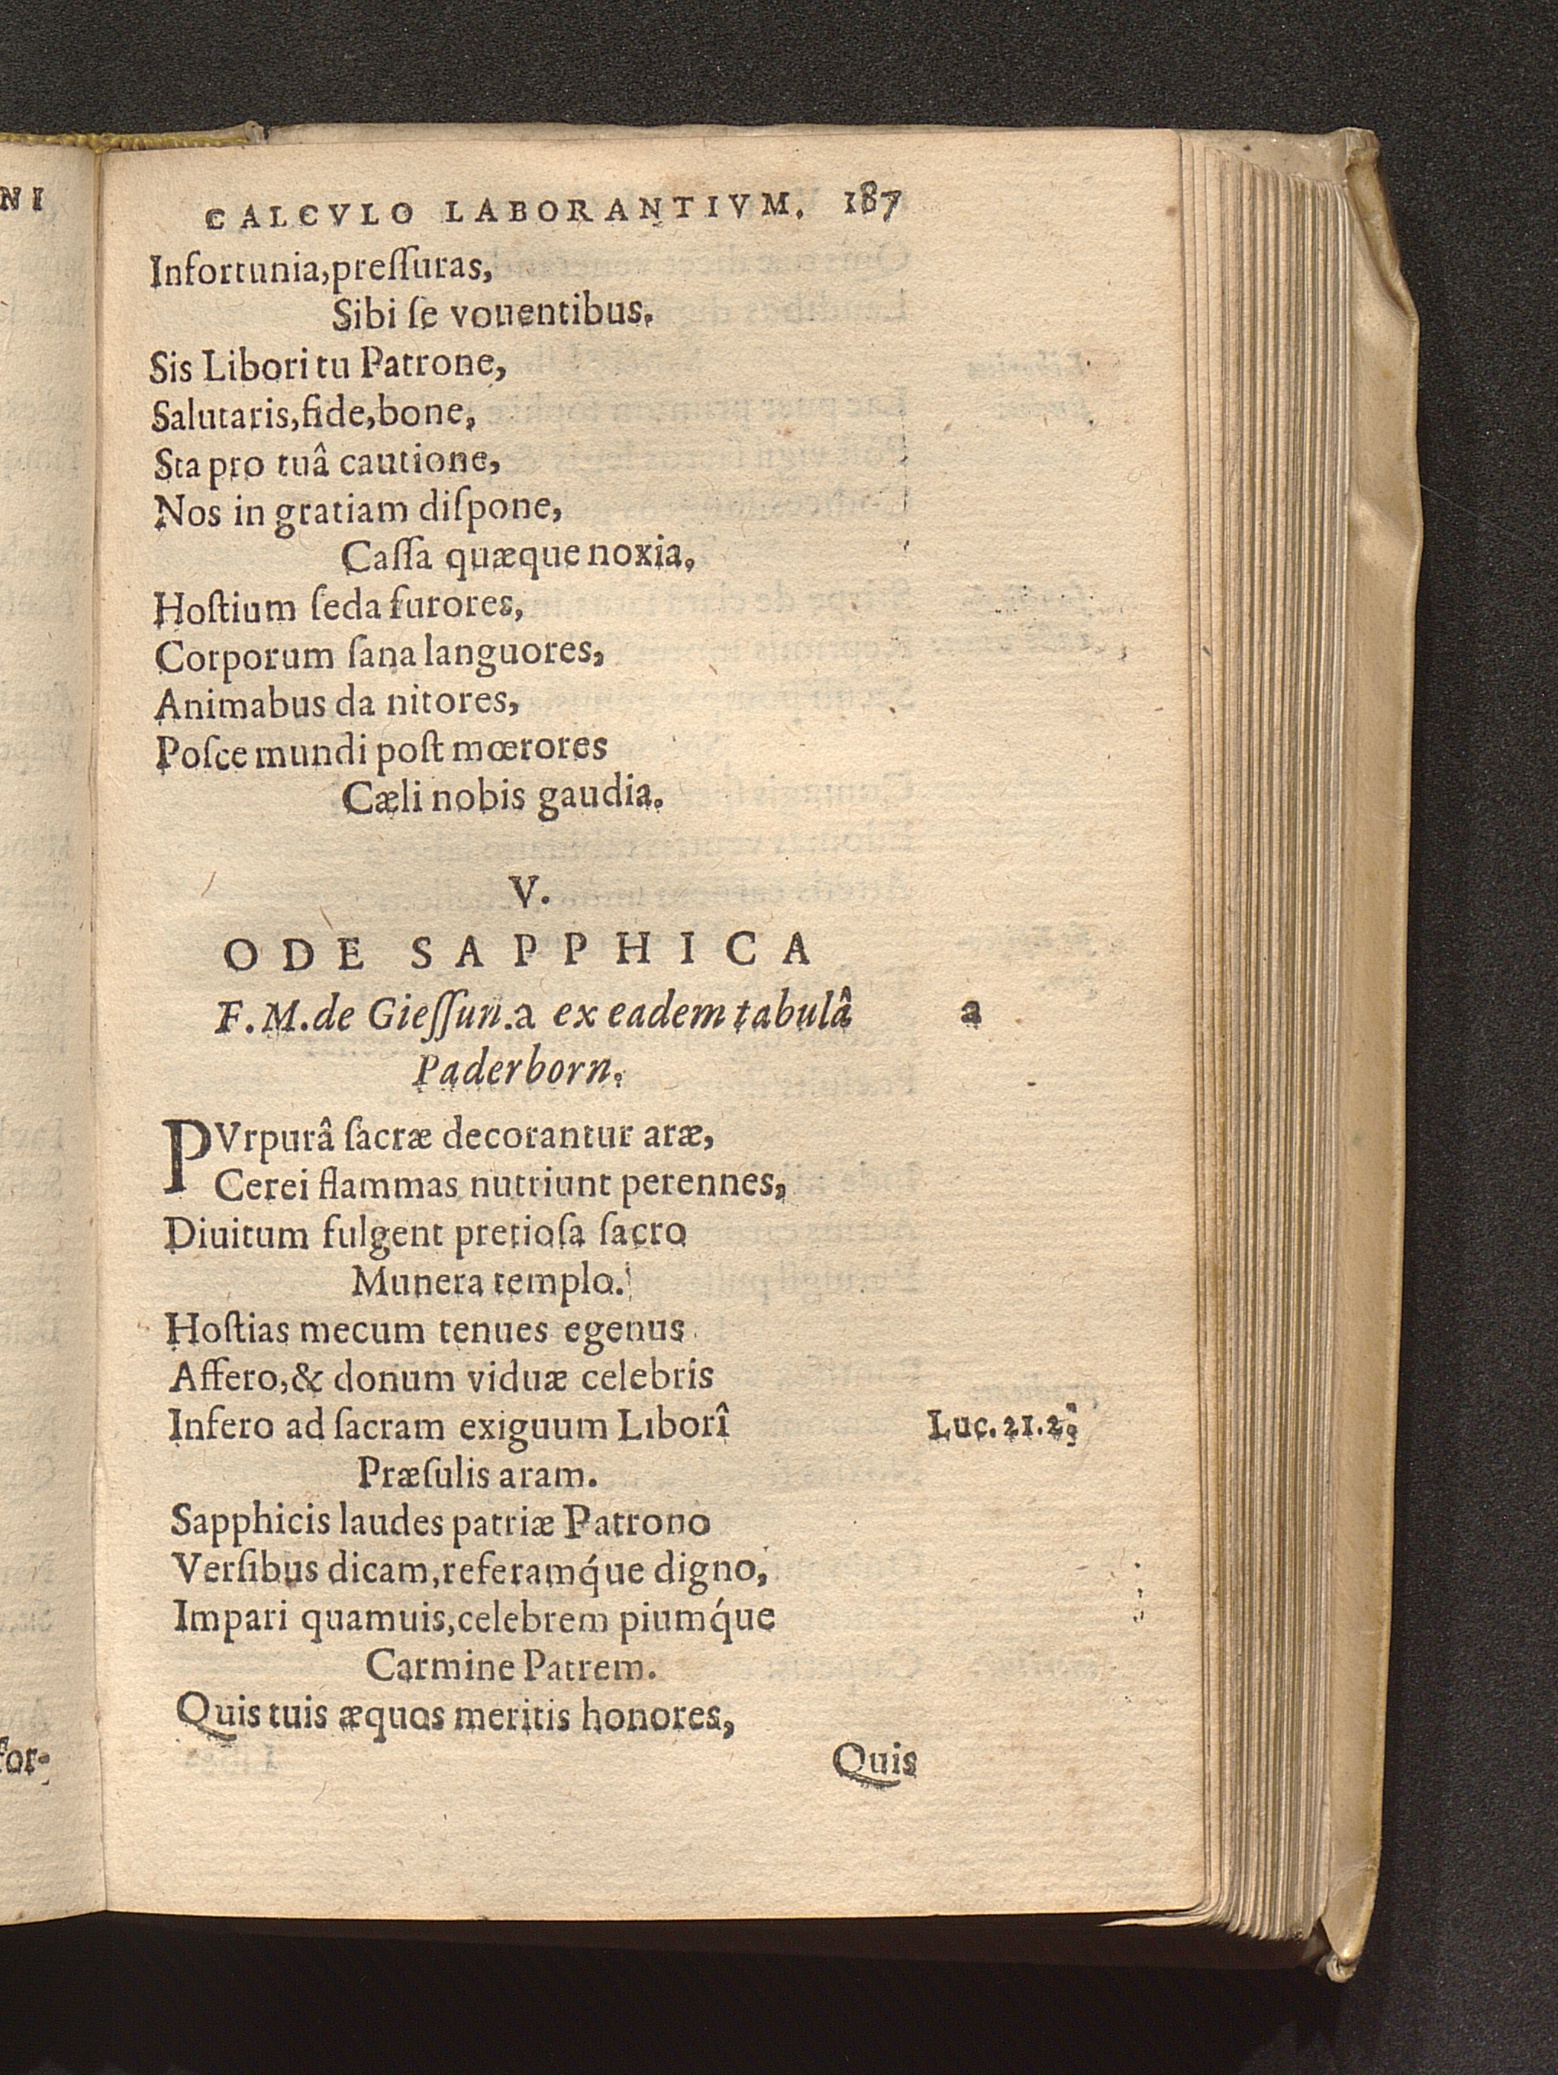 NI
CALCVLO LABORANTIVM. 187
Infortunia,preſſuras,
Sibi ſe vouentibus.
Sis Libori tu Patrone,
Salutaris,fide,bone,
Sta pro tuâ cautione,
Nos in gratiam diſpone,
Caſſa quæque noxia,
Hoſtium ſeda furores,
Corporum ſana languores,
Animabus da nitores,
Poſce mundi poſt mœrores
Cæli nobis gaudia.
V.
ODE SAPPHICA
F. M. de Gieſſun.a ex eadem tabulâ a
Paderborn.
PVrpurâ ſacræ decorantur aræ,
Cerei flammas nutriunt perennes,
Diuitum fulgent pretioſa ſacro
Munera templo.
Hoſtias mecum tenues egenus
Affero,& donum viduæ celebris
Infero ad ſacram exiguum Liborî Luc. 21. 2.
Præſulis aram.
Sapphicis laudes patriæ Patrono
Verſibus dicam,referamq́ue digno,
Impari quamuis,celebrem piumq́ue
Carmine Patrem.
Quis tuis æquos meritis honores,
for-
Quis